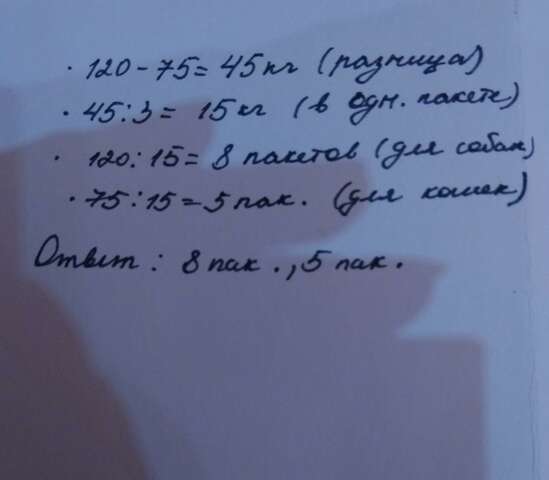 · 120 - 75 = 45 кг (разница)
· 45 : 3 = 15 кг (в одн. пакете)
· 120 : 15 = 8 пакетов (для собак)
· 75 : 15 = 5 пак. (для кошек)
Ответ : 8 пак . , 5 пак .